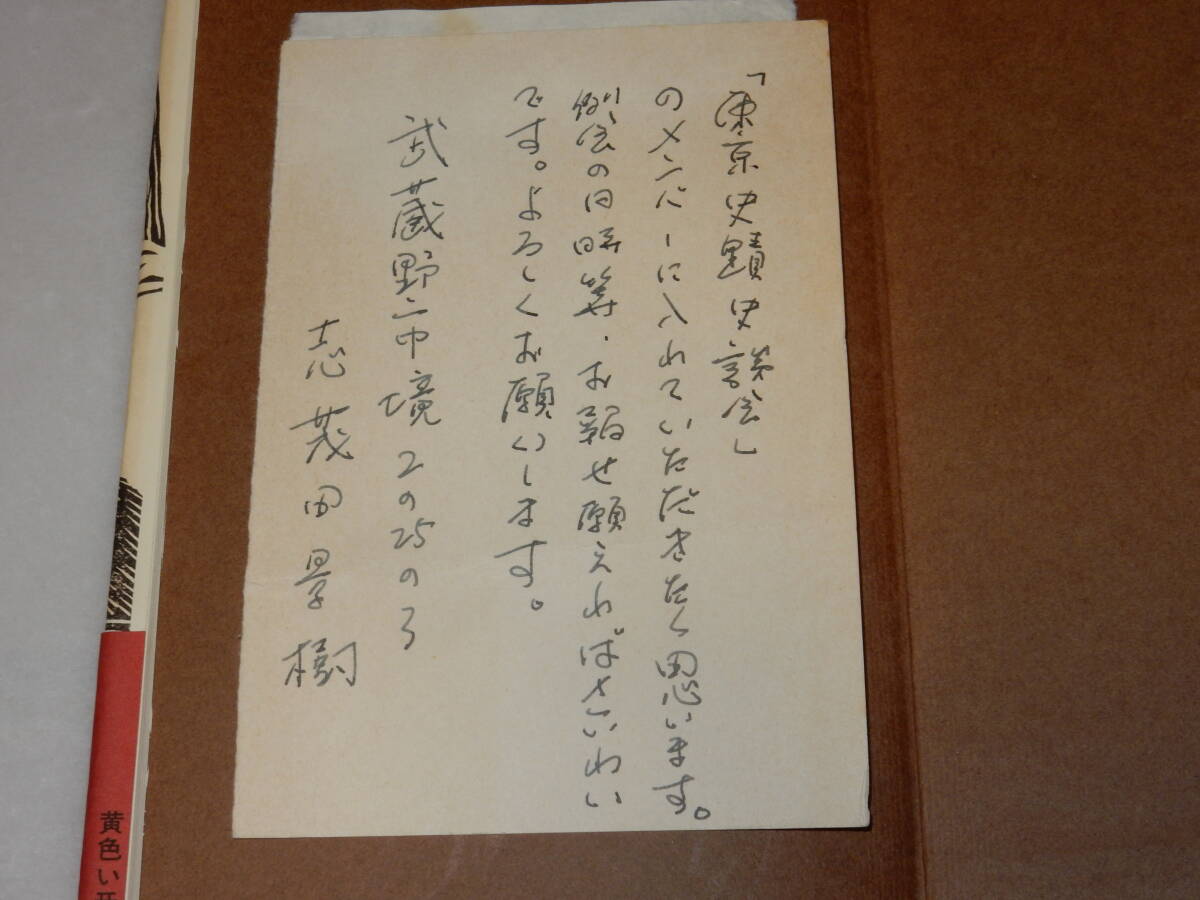 「東京史蹟史談会」
のメンバーに入れていただきたく思います。
例会の日時等・お報せ願えればさいわい
です。よろしくお願いします。
武蔵野市境2の25の3
志茂田景樹
黄色い